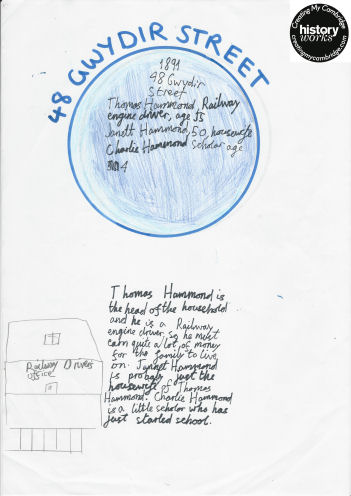 Creating My Cambridge
history
works
creatingmycambridge.com
48 GWYDIR STREET
1891
48 Gwydir
Street
Thomas Hammond, Railway
engine driver, age 55
Janett Hammond, 50, housewife
Charlie Hammond scholar age
4
Thomas Hammond is
the head of the household
and he is a Railway
engine driver, so he must
earn quite a lot of money
for the family to live
on. Janett Hammond
is probably just the
housewife of Thomas
Hammond. Charlie Hammond
is a little scholar who has
just started school.
Railway Drivers
office